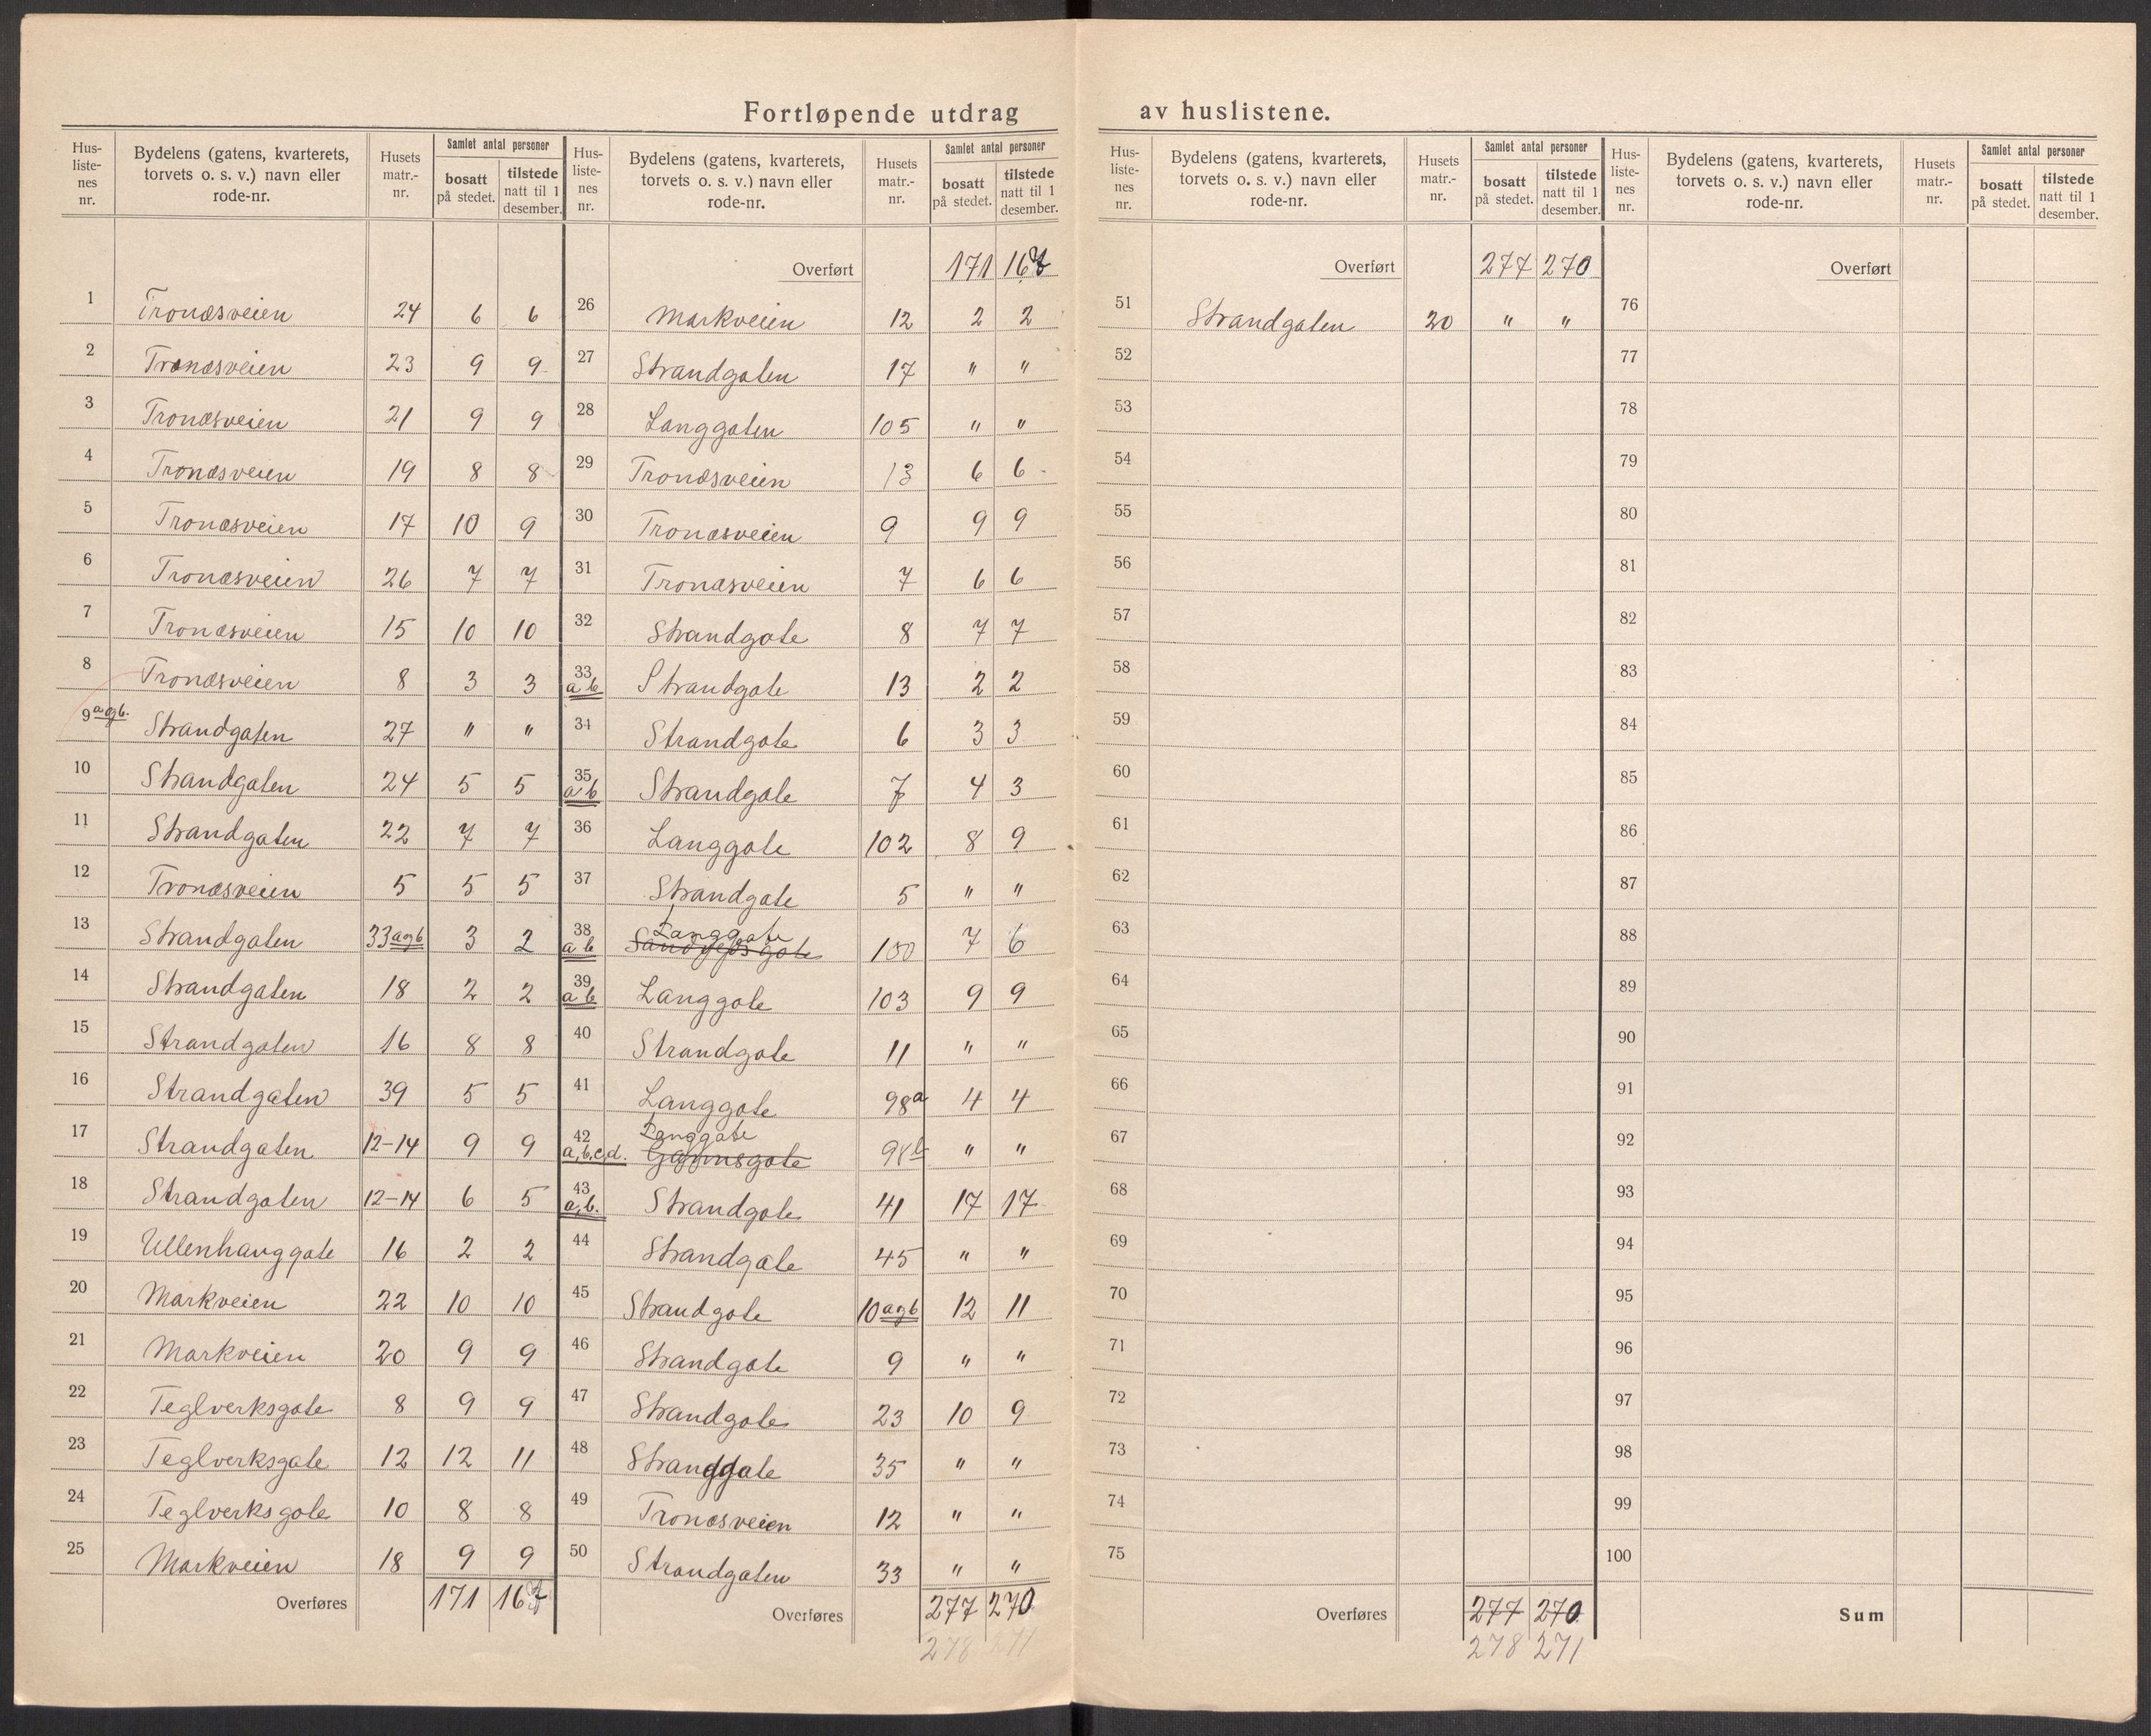 Fortløpende utdrag av huslistene.
Hus-listenes nr. | Bydelens (gatens, kvarterets, torvets o. s. v.) navn eller rode-nr. | Husets matr.-nr. | Samlet antal personer bosatt på stedet. | tilstede natt til 1 desember.
1 Tronæsveien 24 6 6
2 Tronæsveien 23 9 9
3 Tronæsveien 21 9 9
4 Tronæsveien 19 8 8
5 Tronæsveien 17 10 9
6 Tronæsveien 26 7 7
7 Tronæsveien 15 10 10
8 Tronæsveien 8 3 3
9 a og b. Strandgaten 27 " "
10 Strandgaten 24 5 5
11 Strandgaten 22 7 7
12 Tronæsveien 5 5 5
13 Strandgaten 33 a og b 3 2
14 Strandgaten 18 2 2
15 Strandgaten 16 8 8
16 Strandgaten 39 5 5
17 Strandgaten 12-14 9 9
18 Strandgaten 12-14 6 5
19 Ullenhauggate 16 2 2
20 Markveien 22 10 10
21 Markveien 20 9 9
22 Teglverksgate 8 9 9
23 Teglverksgate 12 12 11
24 Teglverksgate 10 8 8
25 Markveien 18 9 9
Overføres 171 167
Hus-listenes nr. | Bydelens (gatens, kvarterets, torvets o. s. v.) navn eller rode-nr. | Husets matr.-nr. | Samlet antal personer bosatt på stedet. | tilstede natt til 1 desember.
Overført 171 167
26 Markveien 12 2 2
27 Strandgaten 17 " "
28 Langgaten 105 " "
29 Tronæsveien 13 6 6
30 Tronæsveien 9 9 9
31 Tronæsveien 7 6 6
32 Strandgate 8 7 7
33 a b Strandgate 13 2 2
34 Strandgate 6 3 3
35 a b Strandgate 7 4 3
36 Langgate 102 8 9
37 Strandgate 5 " "
38 a b Langgate 100 7 6
39 a b Langgate 103 9 9
40 Strandgate 11 " "
41 Langgate 98a 4 4
42 a, b, c, d. Langgate 98b " "
43 a, b. Strandgate 41 17 17
44 Strandgate 45 " "
45 Strandgate 10 a og b 12 11
46 Strandgate 9 " "
47 Strandgate 23 10 9
48 Strandgate 35 " "
49 Tronæsveien 12 " "
50 Strandgaten 33 " "
Overføres 277 270
278 271
Hus-listenes nr. | Bydelens (gatens, kvarterets, torvets o. s. v.) navn eller rode-nr. | Husets matr.-nr. | Samlet antal personer bosatt på stedet. | tilstede natt til 1 desember.
Overført 277 270
51 Strandgaten 20 " "
52
53
54
55
56
57
58
59
60
61
62
63
64
65
66
67
68
69
70
71
72
73
74
75
Overføres 277 270
278 271
Hus-listenes nr. | Bydelens (gatens, kvarterets, torvets o. s. v.) navn eller rode-nr. | Husets matr.-nr. | Samlet antal personer bosatt på stedet. | tilstede natt til 1 desember.
Overført
76
77
78
79
80
81
82
83
84
85
86
87
88
89
90
91
92
93
94
95
96
97
98
99
100
Sum